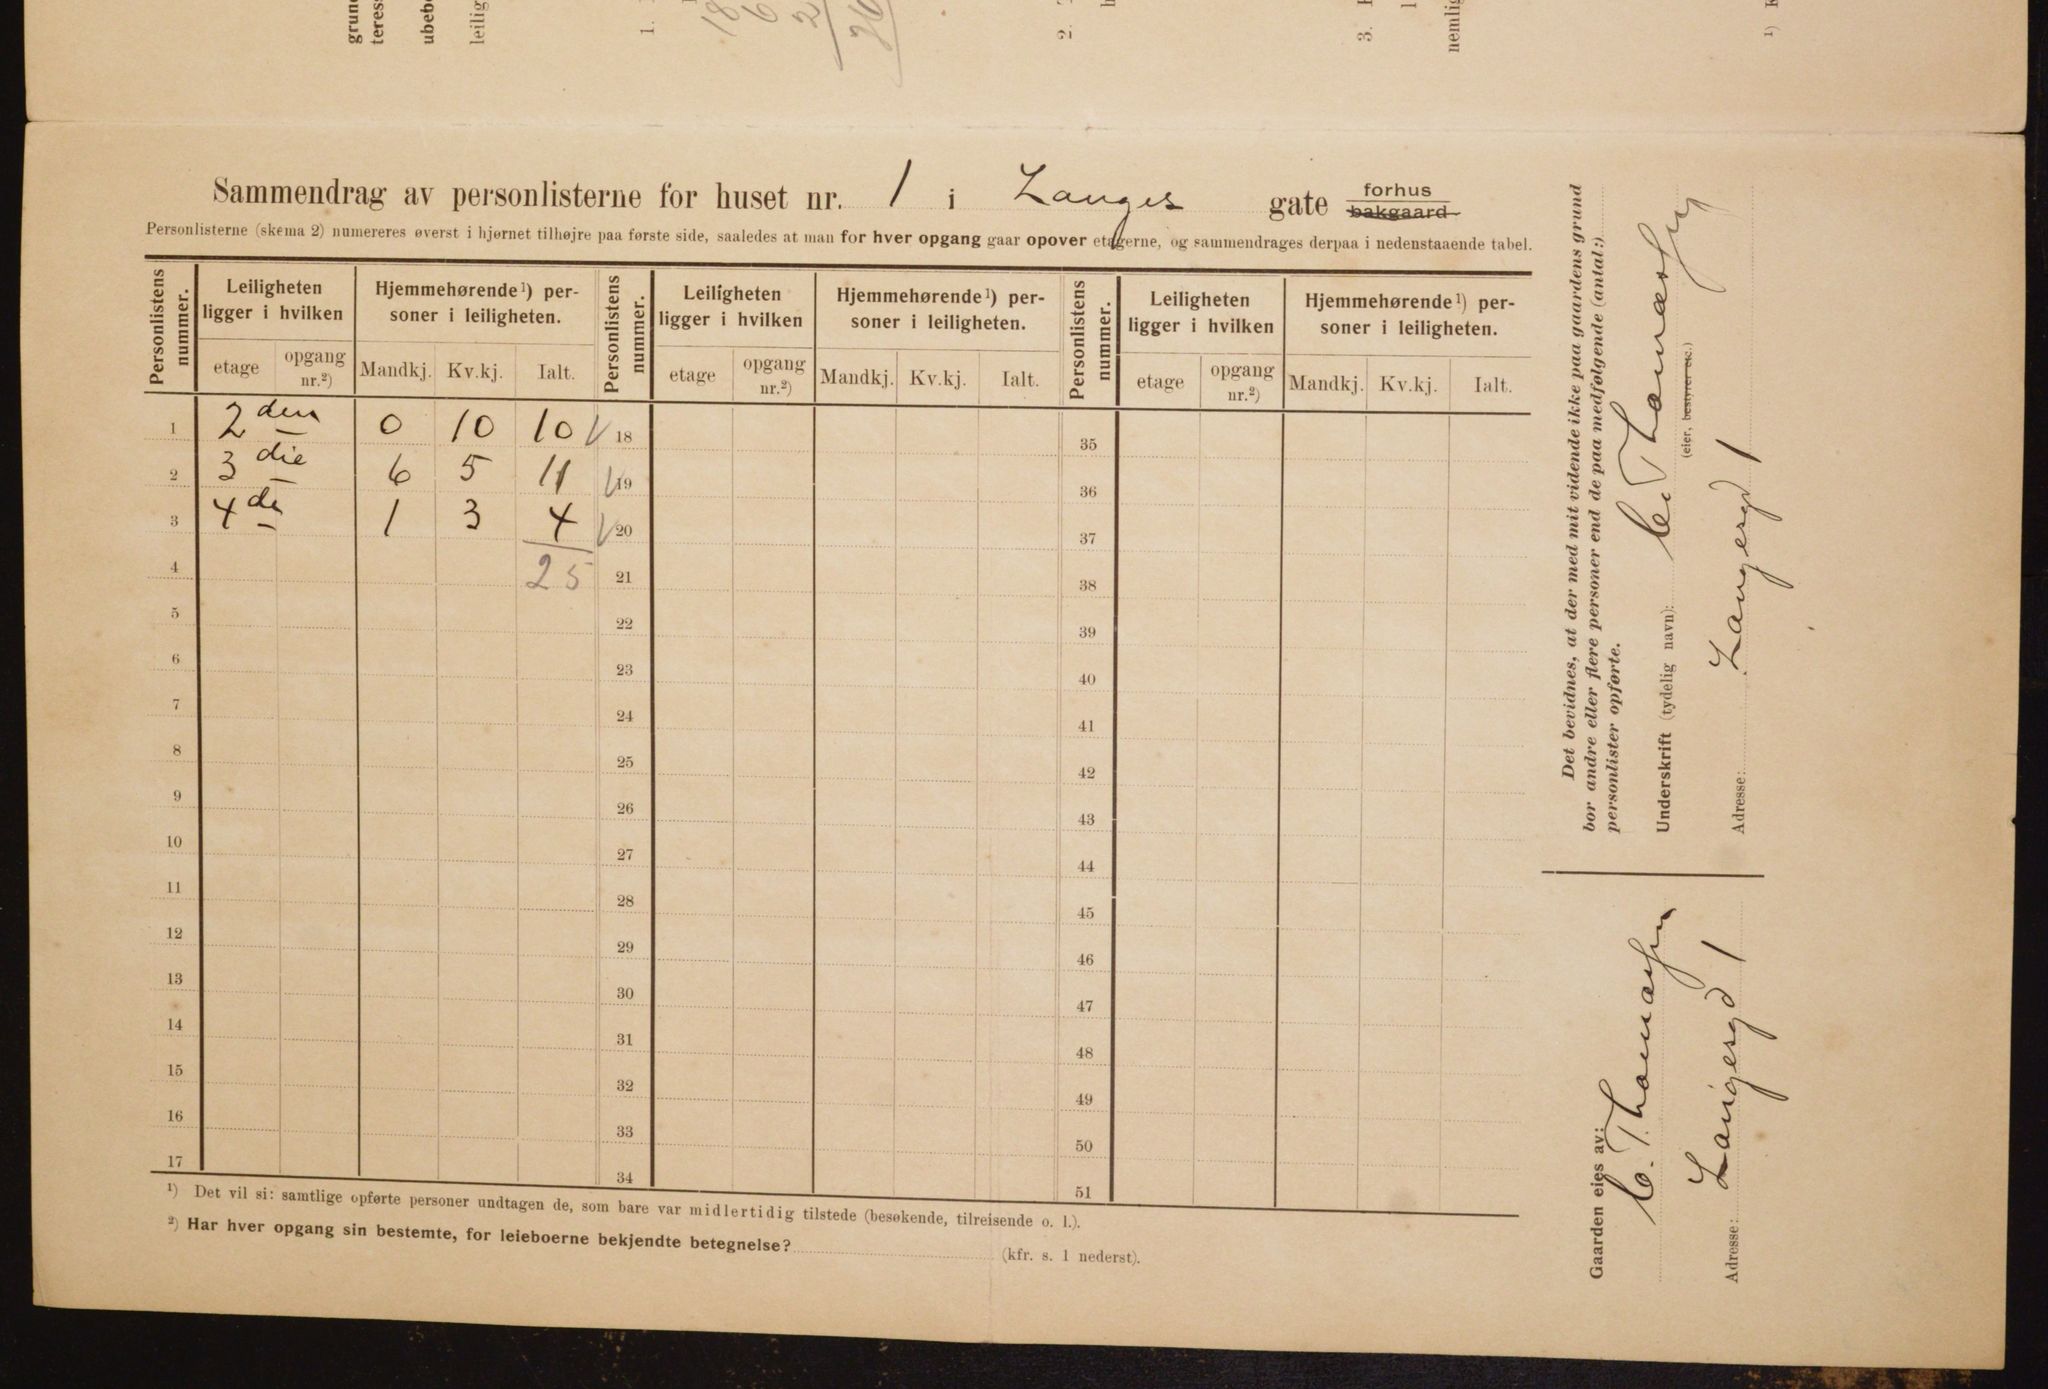 grund
teress
ubebo
leilig
1.
18
6
2
26
2.
3.
nemlig
1)
Sammendrag av personlisterne for huset nr. 1 i Langes gate forhus
bakgaard
Personlisterne (skema 2) numereres øverst i hjørnet tilhøjre paa første side, saaledes at man for hver opgang gaar opover etagerne, og sammendrages derpaa i nedenstaaende tabel.
Personlistens nummer. Leiligheten ligger i hvilken Hjemmehørende 1) personer i leiligheten. Personlistens nummer. Leiligheten ligger i hvilken Hjemmehørende 1) personer i leiligheten. Personlistens nummer. Leiligheten ligger i hvilken Hjemmehørende 1) personer i leiligheten.
etage opgang nr.2) Mandkj. Kv.kj. Ialt. etage opgang nr.2) Mandkj. Kv.kj. Ialt. etage opgang nr.2) Mandkj. Kv.kj. Ialt.
1 2 den 0 10 10 18 35
2 3 die 6 5 11 19 36
3 4 de 1 3 4 20 37
4 25 21 38
5 22 39
6 23 40
7 24 41
8 25 42
9 26 43
10 27 44
11 28 45
12 29 46
13 30 47
14 31 48
15 32 49
16 33 50
17 34 51
1) Det vil si: samtlige opførte personer undtagen de, som bare var midlertidig tilstede (besøkende, tilreisende o. l.).
2) Har hver opgang sin bestemte, for leieboerne bekjendte betegnelse? (kfr. s. 1 nederst).
Det bevidnes, at der med mit vidende ikke paa gaardens grund
bor andre eller flere personer end de paa medfølgende (antal:)
personlister opførte.
Underskrift (tydelig navn): C. Thomassen
(eier, bestyrer etc.)
Adresse: Langesgd 1
Gaarden eies av:
C. Thomassen
Adresse: Langesgd 1